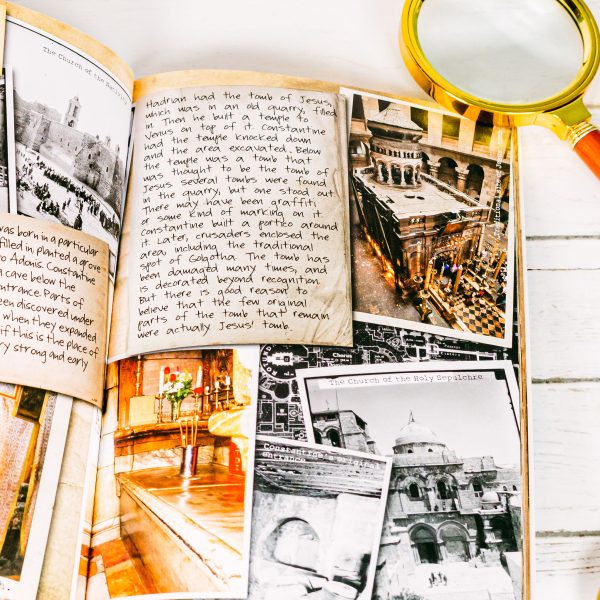 The Church of the Nativity
was born in a particular
filled in, planted a grove
to Adonis. Constantine
cave below the
entrance. Parts of
been discovered under
when they expanded
if this is the place of
very strong and early
Hadrian had the tomb of Jesus,
which was in an old quarry, filled
in. Then he built a temple to
Venus on top of it. Constantine
had the temple knocked down
and the area excavated. Below
the temple was a tomb that
was thought to be the tomb of
Jesus. Several tombs were found
in the quarry, but one stood out.
There may have been graffiti
or some kind of marking on it.
Constantine built a portico around
it. Later, crusaders enclosed the
area, including the traditional
spot of Golgotha. The tomb has
been damaged many times, and
is decorated beyond recognition.
But there is good reason to
believe that the few original
parts of the tomb that remain
were actually Jesus' tomb.
Chorus
The Church of the Holy Sepulchre
Constantine's original
entrance